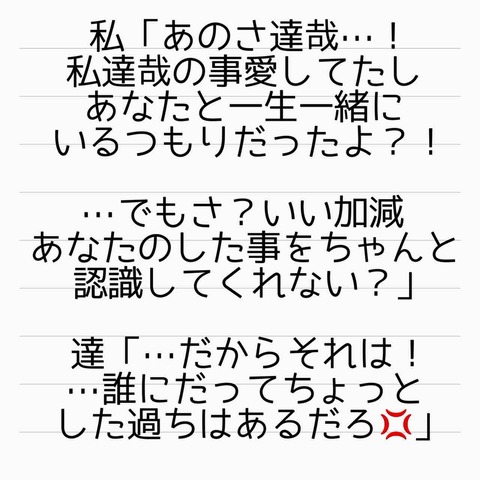 私「あのさ達哉…！
私達哉の事愛してたし
あなたと一生一緒に
いるつもりだったよ？！
…でもさ？いい加減
あなたのした事をちゃんと
認識してくれない？」
達「…だからそれは！
…誰にだってちょっと
した過ちはあるだろ💢」